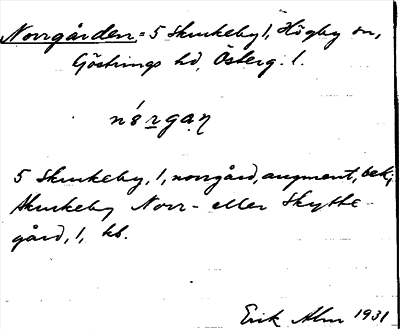 Norrgården = 5 Skrukeby 1, Högby sn,
Göstrings hd, Österg. l.
5 Skrukeby, 1, norrgård, augment, bek;
Skrukeby Norr- eller Skytte-
gård, 1, kb.
Erik Alm 1931